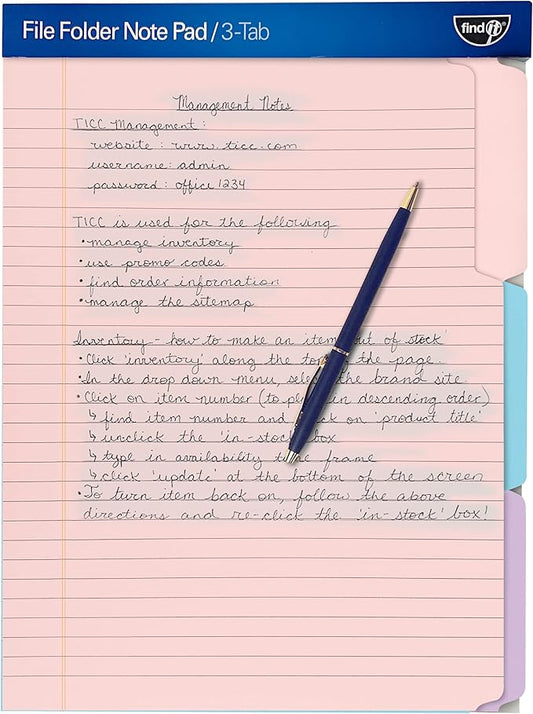 File Folder Note Pad / 3-Tab
find it®
Management Notes
TICC Management:
website : www.ticc.com
username: admin
password: office1234
TICC is used for the following
• manage inventory
• use promo codes
• find order information
• manage the sitemap
Inventory - how to make an item out of stock
• Click 'inventory' along the top of the page.
• In the drop down menu, select the brand site.
• Click on item number (to place in descending order)
↳ find item number and click on 'product title'
↳ unclick the 'in-stock' box
↳ type in availability time frame
↳ click 'update' at the bottom of the screen
• To turn item back on, follow the above
directions and re-click the 'in-stock' box!